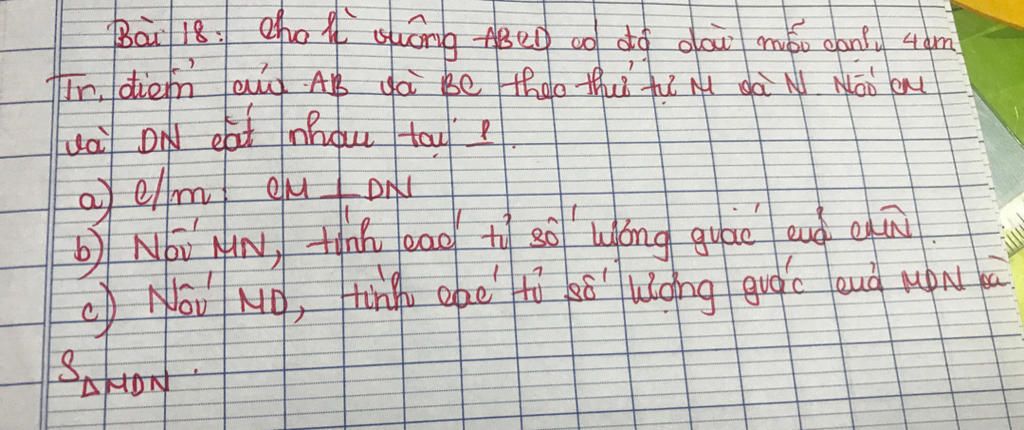 Bài 18: Cho h vuông ABCD có độ dài mỗi cạnh 4cm.
Tr. điểm của AB và BC theo thứ tự M và N. Nối CM
và DN cắt nhau tại P.
a) C/m: CM ⊥ DN
b) Nối MN, tính các tỉ số lượng giác của CMN.
c) Nối MD, tính các tỉ số lượng giác của MDN và
S△MDN.